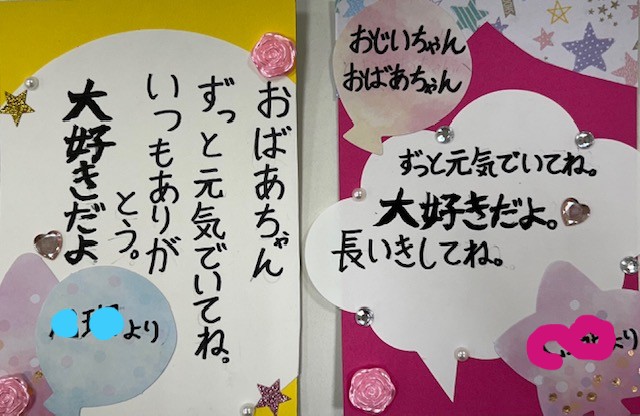 おばあちゃん
ずっと元気でいてね。
いつもありが
とう。
大好きだよ
より
おじいちゃん
おばあちゃん
ずっと元気でいてね。
大好きだよ。
長いきしてね。
より